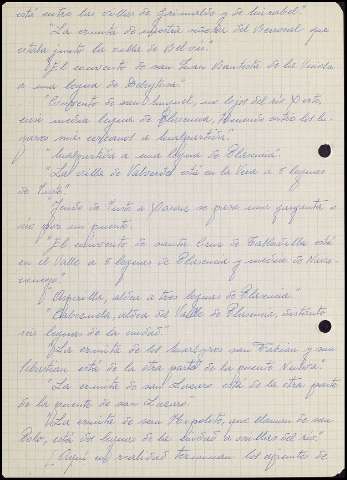 está entre las villas de Grimaldo y de Mirabel"
"La ermita de nuestra señora del Berrocal que
estaba junto la villa de Belvis".
"El convento de san Juan Bautista de la Viciosa
a una legua de Deleytosa".
"Convento de san Miguel, no lejos del río Xerte,
casi media legua de Plasencia, teniendo entre los lu-
gares más cercanos a Malpartida."
"Malpartida a una legua de Plasencia"
"La villa de Valverde está en la Vera a 8 leguas
de Yuste".
"Yendo de Yuste a Xarais se pasa una garganta o
río por un puente."
"El convento de santa Cruz de Tabladilla está
en el Valle a 5 leguas de Plasencia y media de Nava-
concejo"
"Asperilla, aldea a tres leguas de Plasencia"
"Cabezuela, aldea del Valle de Plasencia, distante
seis leguas de la ciudad."
"La ermita de los mártyres san Fabián y san
Sebastián está de la otra parte de la puente Nueva"
"La ermita de san Lázaro está de la otra parte
de la puente de san Lázaro"
"La ermita de san Hipólito, que llaman de san
Polo, está dos leguas de la ciudad a orillas del río."
(Aquí en realidad terminan los apuntes de